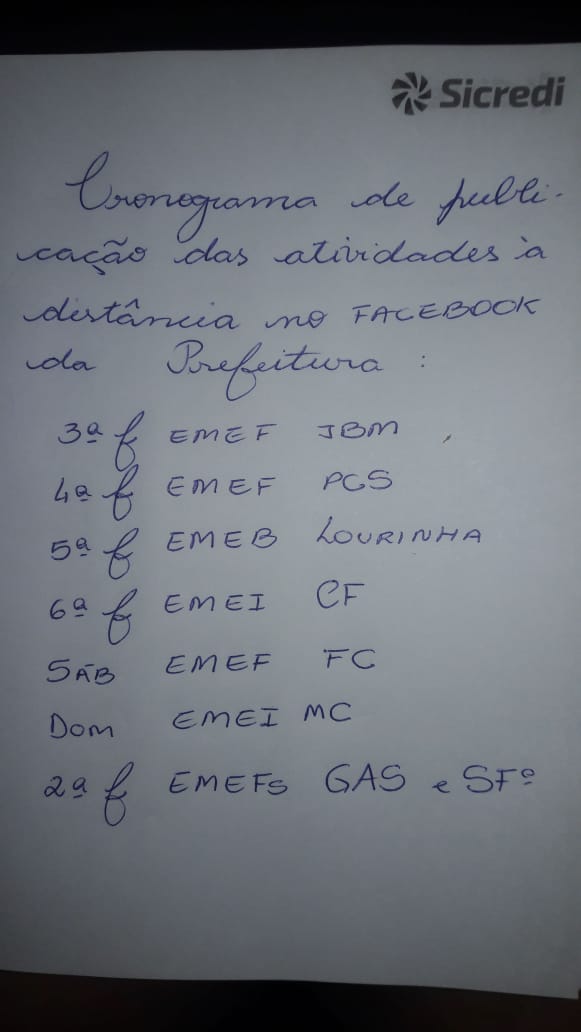 Sicredi
Cronograma de publi-
cação das atividades à
distância no FACEBOOK
da Prefeitura :
3ª f EMEF JBM
4ª f EMEF PGS
5ª f EMEB LOURINHA
6ª f EMEI CF
SÁB EMEF FC
DOM EMEI MC
2ª f EMEFs GAS e SFº